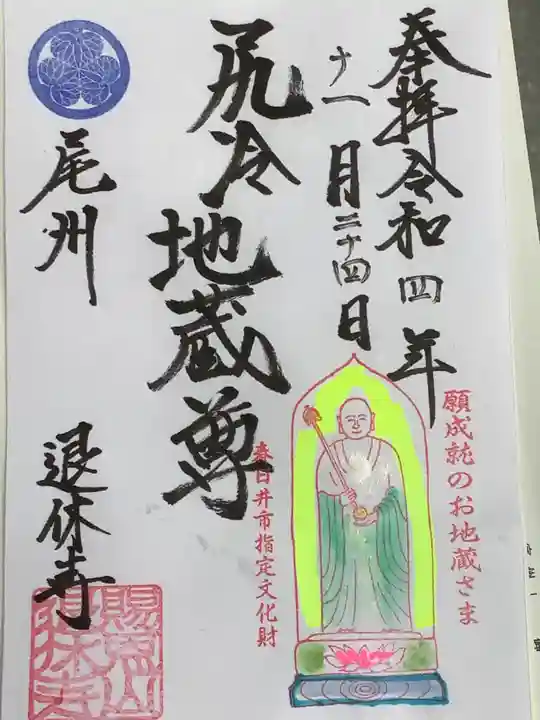 奉拝 令和四年
十一月二十四日
尻冷地蔵尊
尾州
退休寺
願成就のお地蔵さま
春日井市指定文化財